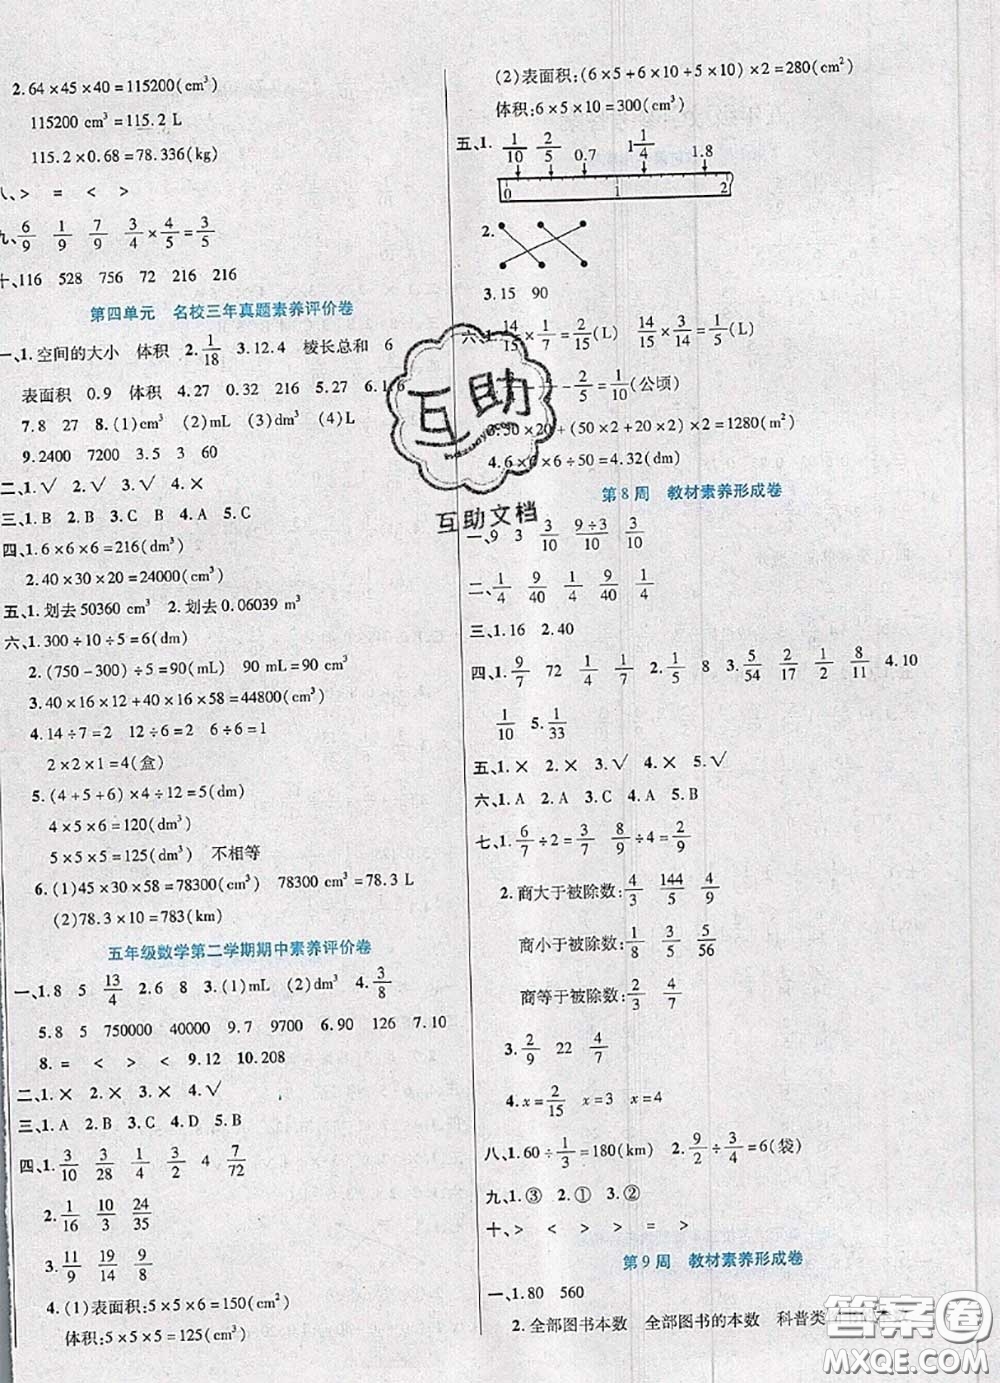 2.64×45×40=115200(cm³)
115200 cm³=115.2 L
115.2×0.68=78.336(kg)
八、> = < >
九、6/9 1/9 7/9 3/4×4/5=3/5
十、116 528 756 72 216 216
第四单元 名校三年真题素养评价卷
一、1.空间的大小 体积 2.1/18 3.12.4 棱长总和 6
表面积 0.9 体积 4.27 0.32 216 5.27 6.1.6
7.8 27 8.(1)cm³ (2)mL (3)L
9.2400 7200 3.5 3 60
二、1.√ 2.× 3.× 4.√ 5.√
三、1.B 2.B 3.C B 4.A 5.C
四、1.6×6×6=216(dm³)
2.40×30×20=24000(cm³)
五、1.划去50360 cm³ 2.划去0.06039 m³
六、1.300÷10÷5=6(dm)
2.(750-300)÷5=90(mL) 90 mL=90 cm³
3.40×16×12+40×16×58=44800(cm³)
4.14÷7=2 12÷6=2 6÷6=1
2×2×1=4(盒)
5.(4+5+6)×4÷12=5(dm)
4×5×6=120(dm³)
5×5×5=125(dm³) 不相等
6.(1)45×30×58=78300(cm³) 78300 cm³=78.3 L
(2)78.3×10=783(km)
五年级数学第二学期期中素养评价卷
一、1.8 5 13/4 2.6 8 3.(1)mL (2)dm³ 4.3/8
5.8 5 750000 40000 9.7 9700 6.90 126 7.10
8. = < > < 9.12 10.208
二、1.× 2.× 3.× 4.√
三、1.A 2.B 3.C 4.D 5.B
四、1.3/10 3/28 1/4 3/2 4 7/72
2.1/16 10/3 24/35
3.11/9 19/10 9/8
4.(1)表面积:5×5×6=150(cm²)
体积:5×5×5=125(cm³)
(2)表面积:(6×5+6×10+5×10)×2=280(cm²)
体积:6×5×10=300(cm³)
五、1. 1/10 2/5 0.7 1 1/4 1.8
0 1 2
2.
3.15 90
六、1.14/15×1/7=2/15(L) 14/15×3/14=(L)
-2/5=1/10(公顷)
3.50×20+(50×2+20×2)×2=1280(m²)
4.6×6×6÷50=4.32(dm)
互助
互助文档
第8周 教材素养形成卷
一、9 3 3/10 9÷3/10 3/10
二、1/4 9/40 1/4 9/40 1/4
三、1.16 2.40
四、1.9/7 72 1/4 1/7 2.1/5 8 3.5/54 2/17 1/2 8/11 4.10
1/10 5.1/33
五、1.× 2.× 3.√ 4.× 5.√
六、1.A 2.A 3.C 4.A 5.B
七、1.6/7÷2=3/7 8/9÷4=2/9
2.商大于被除数:4/3 144/5 4/9
商小于被除数:1/8 3/5 5/56
商等于被除数:2/3 4/7
3.2/9 22 4/7
4.x=2/15 x=3 x=4
八、1.60÷1/3=180(km) 2.9/2÷3/4=6(袋)
九、1.③ 2.① 3.②
十、> < > > = >
第9周 教材素养形成卷
一、1.80 560
2.全部图书本数 全部图书的本数 科普类
答案圈
MXQE.COM